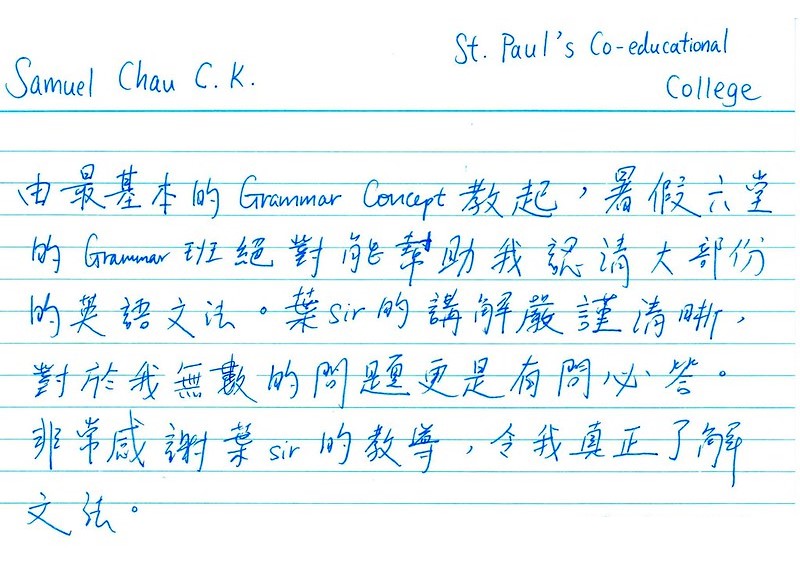 St. Paul's Co-educational
College
Samuel Chau C.K.
由最基本的 Grammar Concept 教起，暑假六堂
的 Grammar 班絕對能幫助我認清大部份
的英語文法。葉sir的講解嚴謹清晰，
對於我無數的問題更是有問必答。
非常感謝葉sir的教導，令我真正了解
文法。